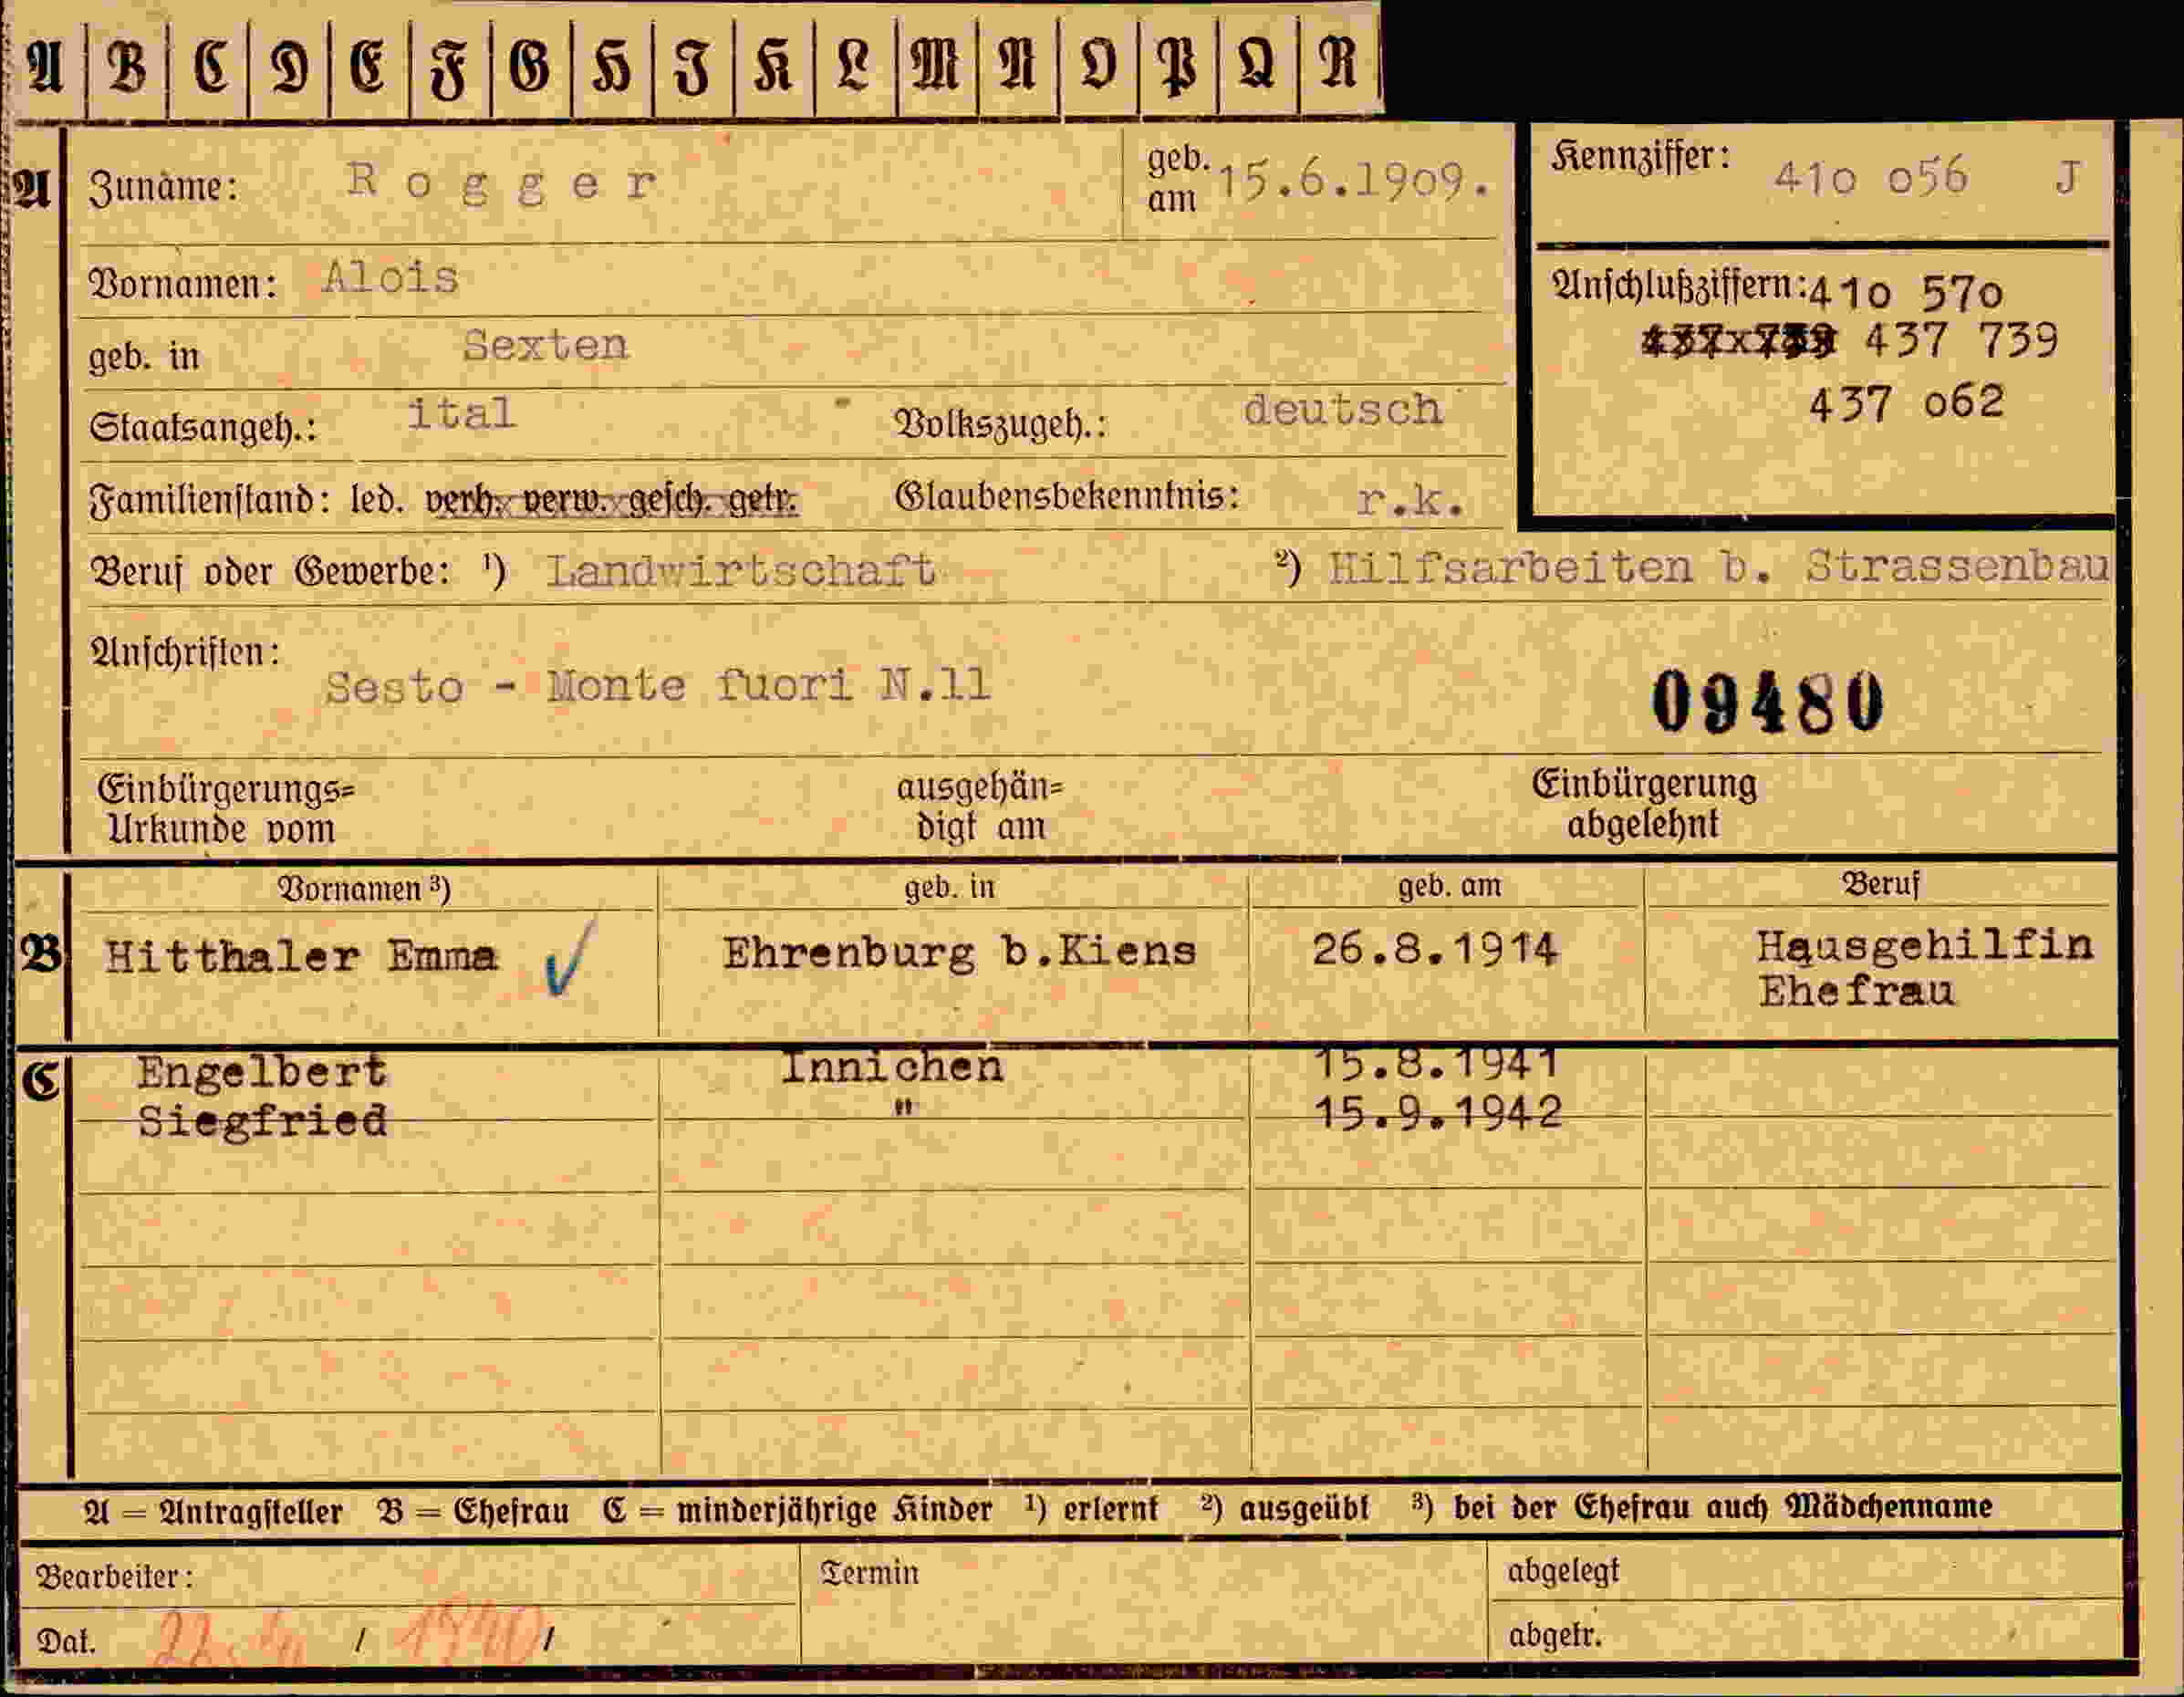 A B C D E F G H I K L M N O P Q R
A Zuname: Rogger geb. am 15.6.1909. Kennziffer: 410 056 J
Vornamen: Alois Anschlußziffern: 410 570
geb. in Sexten 437 739
Staatsangeh.: ital Volkszugeh.: deutsch 437 062
Familienstand: led. verh. verw. gesch. getr. Glaubensbekenntnis: r.k.
Beruf oder Gewerbe: ¹) Landwirtschaft ²) Hilfsarbeiten b. Strassenbau
Anschriften:
Sesto - Monte fuori N.11 09480
Einbürgerungs= ausgehän= Einbürgerung
Urkunde vom digt am abgelehnt
Vornamen ³) geb. in geb. am Beruf
B Hitthaler Emma Ehrenburg b.Kiens 26.8.1914 Hausgehilfin
Ehefrau
C Engelbert Innichen 15.8.1941
Siegfried " 15.9.1942
A = Antragsteller B = Ehefrau C = minderjährige Kinder ¹) erlernt ²) ausgeübt ³) bei der Ehefrau auch Mädchenname
Bearbeiter: Termin abgelegt
Dat. / 1940 / abgetr.